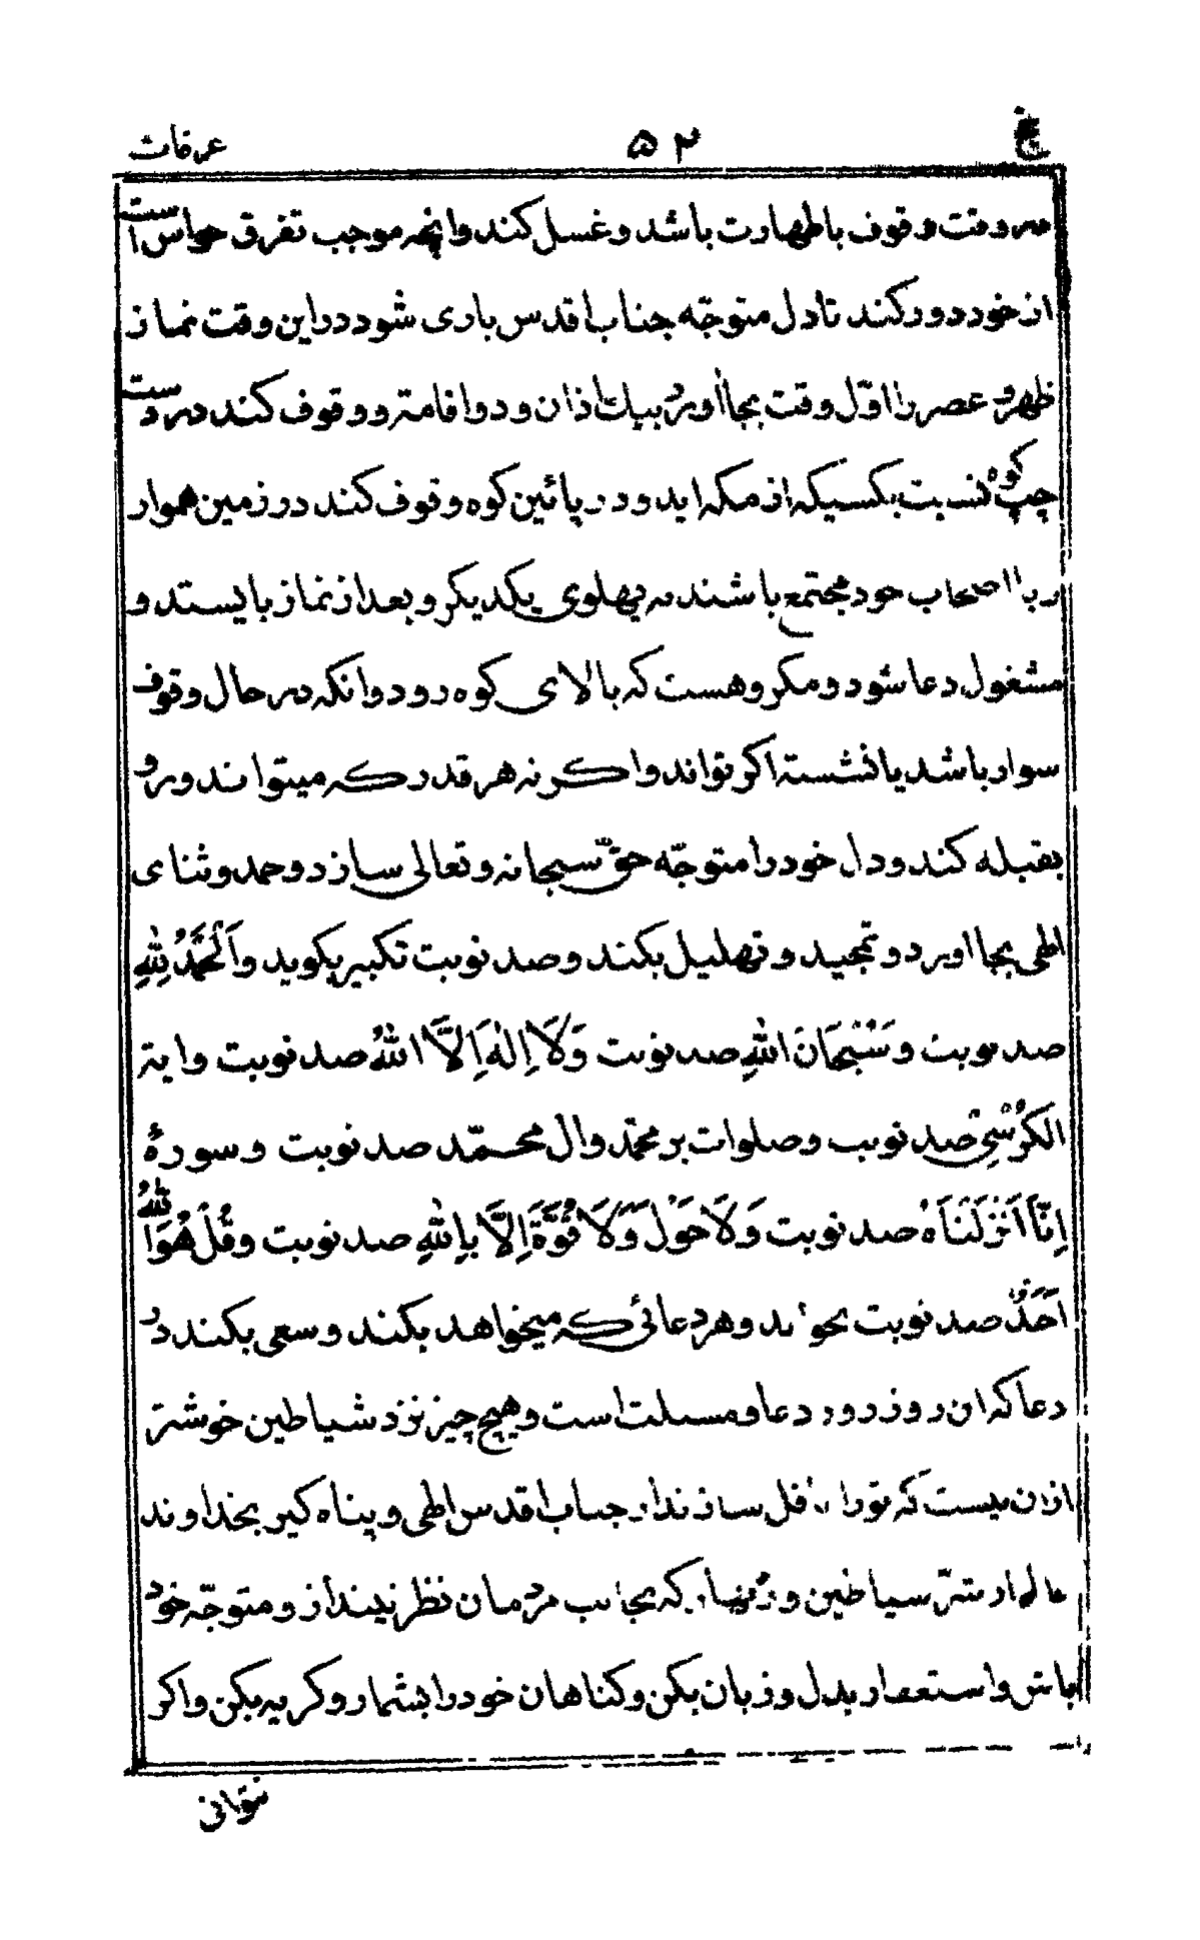 حج ۵۲ عرفات
در وقت وقوف باطهارت باشد و غسل کند وانچه موجب تفرق حواس است
از خود دور کند تا دل متوجّه جناب اقدس باری شود در این وقت نماز
ظهر و عصر را اوّل وقت بجا اورد بیك اذان و دو اقامة و وقوف کند در دست
چپ کوه نسبت بکسیکه از مکه اید و در پائین کوه وقوف کند در زمین هموار
و با اصحاب خود مجتمع باشند در پهلوی یکدیکر و بعد از نماز بایستد و
مشغول دعا شود و مکروهست که بالای کوه رود وانکه در حال وقوف
سوار باشد یا نشسته اکر تواند و اکر نه هر قدر که میتواند و رو
بقبله کند و دل خود را متوجّه حقّ سبحانه و تعالی سازد و حمد و ثنای
الهی بجا اورد و تمجید و تهلیل بکند و صد نوبت تکبیر بکوید و اَلْحَمْدُ لِلّٰهِ
صد نوبت و سُبْحَانَ اللهِ صد نوبت وَلَا اِلٰهَ اِلَّا اللهُ صد نوبت و ایة
الکُرْسِی صد نوبت و صلوات بر محمّد وال محمّد صد نوبت و سورهٔ
اِنَّا اَنْزَلْنَاهُ صد نوبت وَلَا حَوْلَ وَلَا قُوَّةَ اِلَّا بِاللهِ صد نوبت و قُلْ هُوَ اللهُ
اَحَدٌ صد نوبت بخواند و هر دعائی که میخواهد بکند و سعی بکند در
دعا که ان روز روز دعا و مسئلت است و هیچ چیز نزد شیاطین خوشتر
ازان نیست که تو را غافل سازند از جناب اقدس الهی و پناه کیر بخداوند
عالم از شرّ شیاطین و زنهار که بجانب مردمان نظر نیندازو متوجّه خود
باش و استغفار بدل و زبان بکن و کناهان خود را بشمار و کریه بکن و اکر
نتوانی